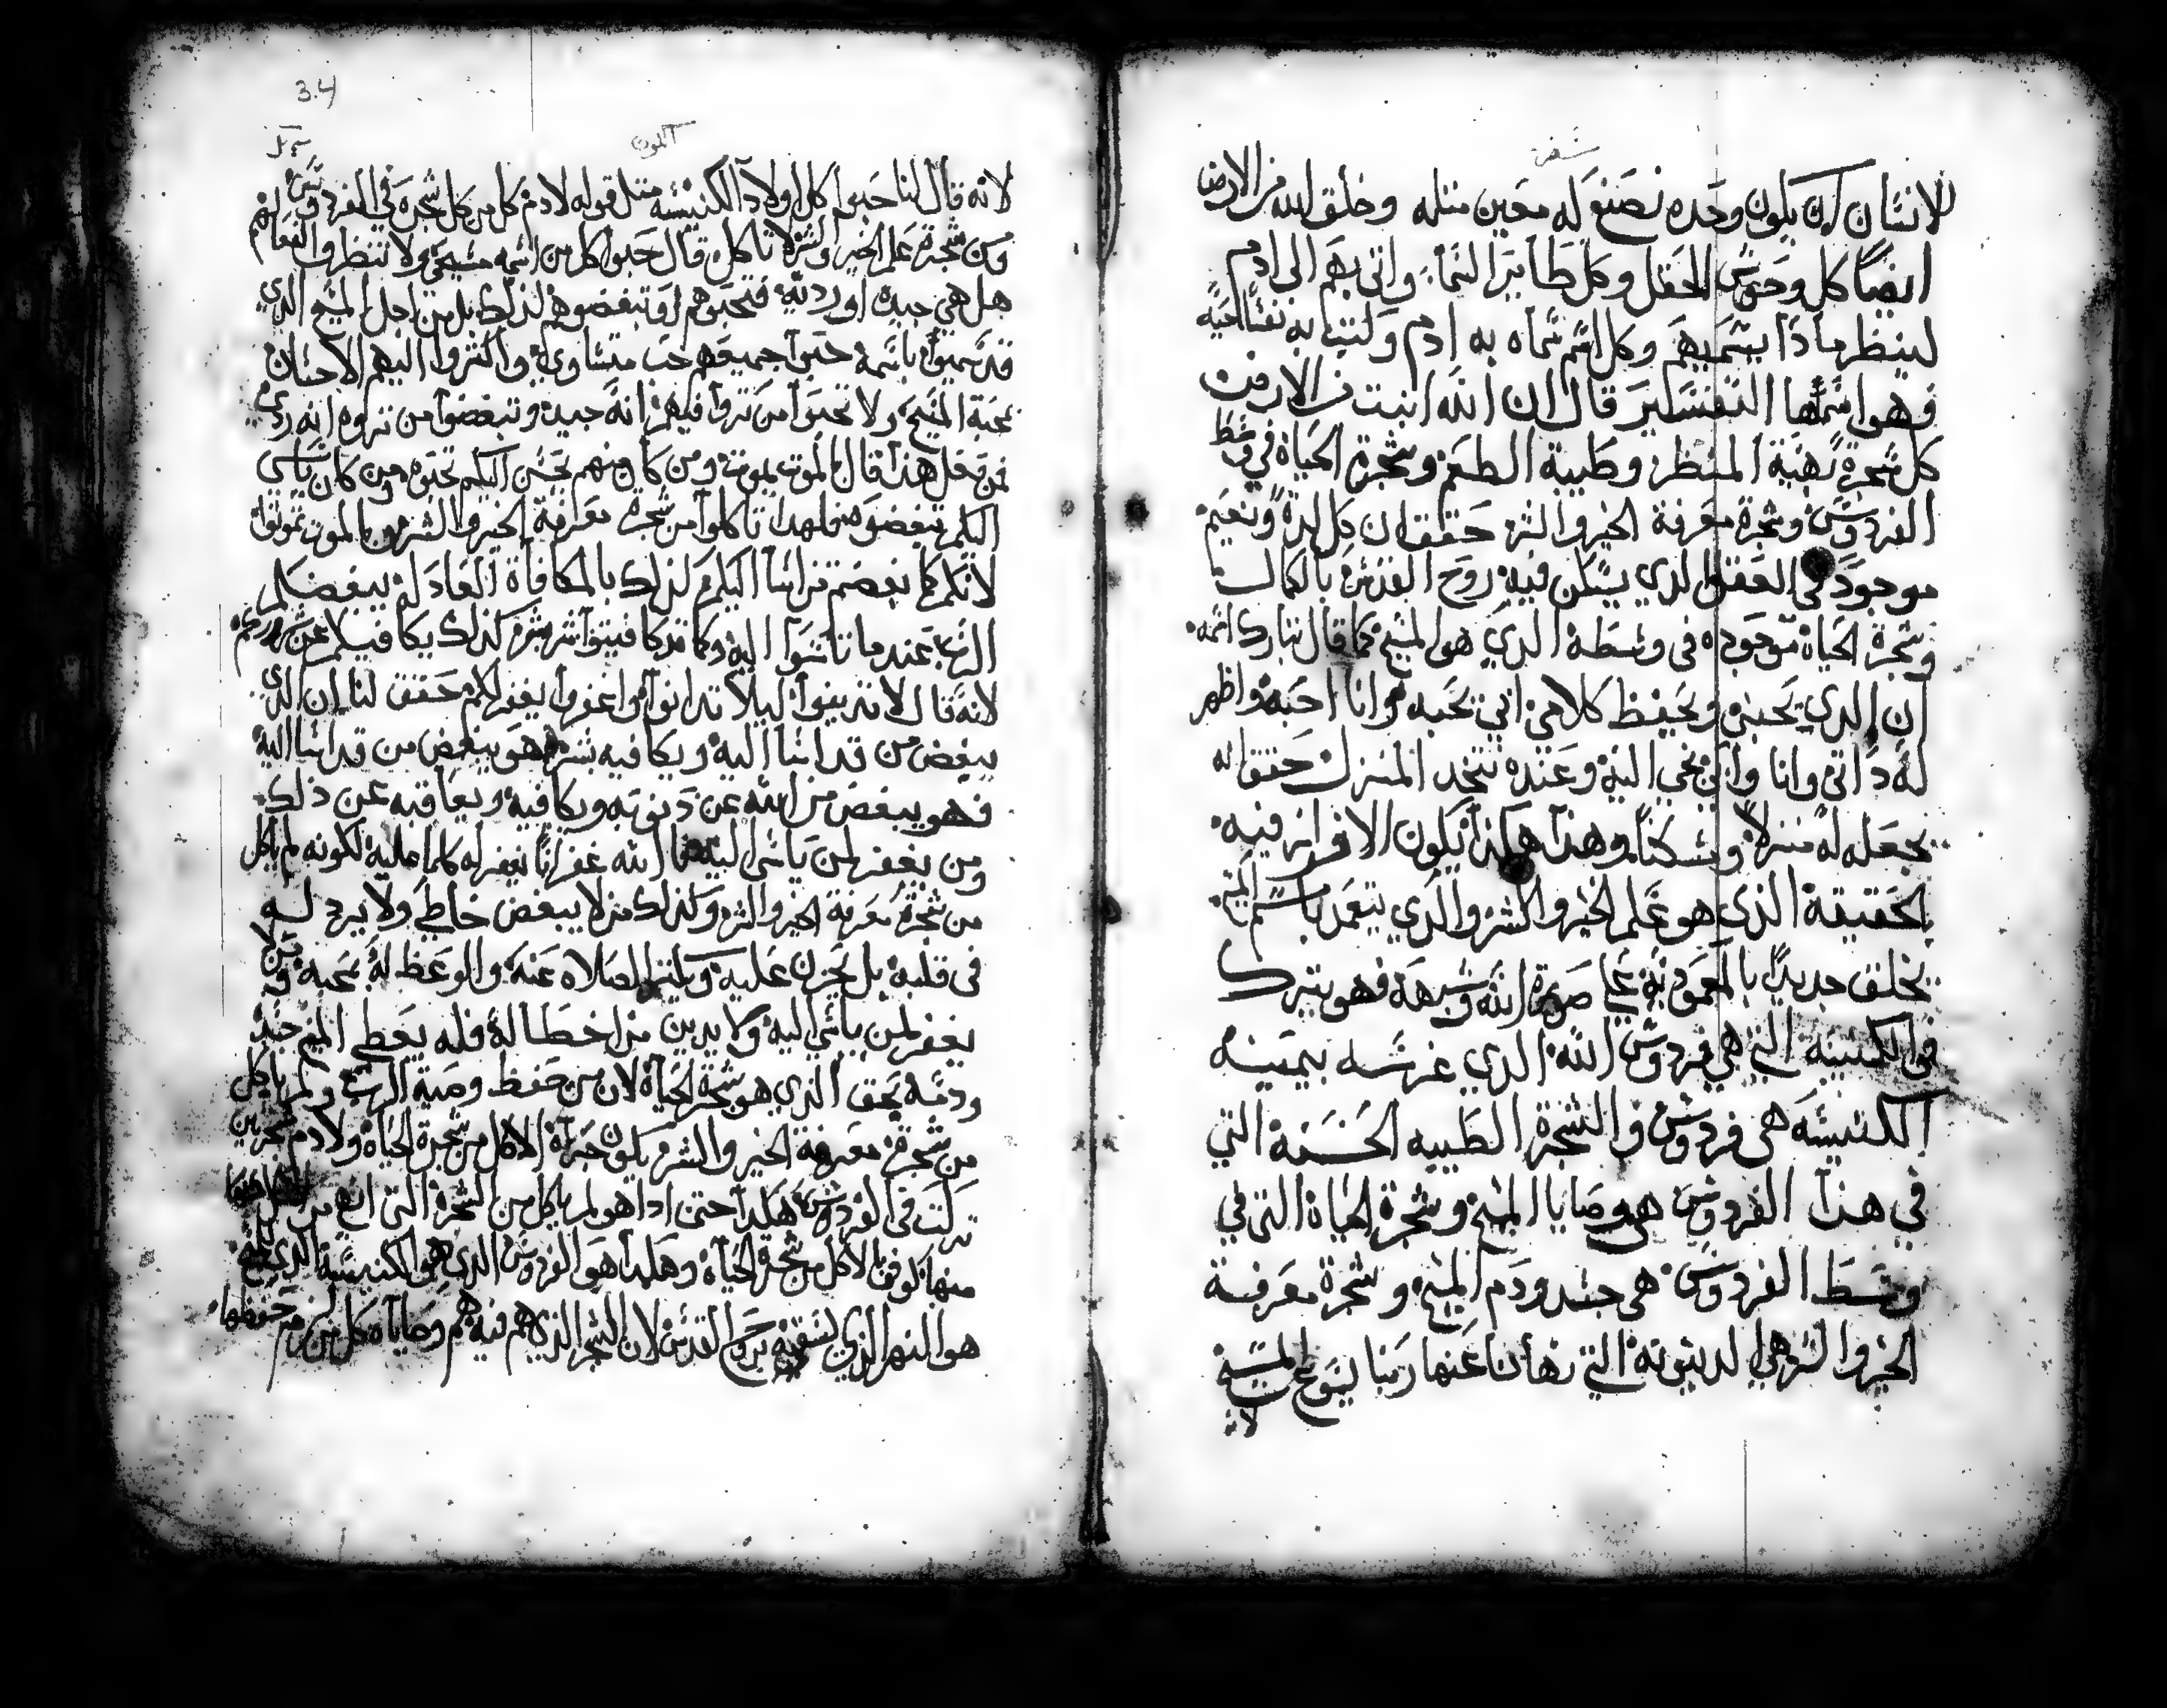 سفر
للانسان ان يكون وحده نصنع له معين مثله وخلق الله من الارض
ايضًا كل وحوش الحقل وكل طاير السما واتى بهم الى ادم
لينظر ماذا يسميهم وكل اسم سماه به ادم ولتبا به نفسًا حيه
فهو اسمها التفسير قال ان الله انبت من الارض
كل شجرة بهية المنظر وطيبة الطعم وشجرة الحياة في وسط
الفردوس وشجرة معرفة الخير والشر حقق ان كل لدة ونعيم
موجود في العقل الدي يسكن فيه روح القدس بالكمال
وشجرة الحياة موجوده في وسطه الدي هو المسيح كما قال تبارك اسمه
ان الدي يحبني ويحفظ كلامي ابي يحبه وانا احبه واظهر
له داتي وانا وابي نجي اليه وعنده نتخد المنزل حقق انه
يجعله له منزلاً ومسكنًا وهدا هكدا يكون الافراز فيه
الحقيقة الدي هو علم الخير والشر والدي يتعمد باسم المسيح
يخلق جديدًا بالمعمودية على صورة الله وشبهه فهو يترك
في الكنيسه التي هي فردوس الله الدي غرسه بيمينه
الكنيسه هي فردوس والشجرة الطيبه الحسنه التي
في هدا الفردوس هي وصايا المسيح وشجرة الحياة التي في
وسط الفردوس هي جسد ودم المسيح وشجرة معرفة
الخير والشر هي الدينونة التي نهانا عنها ربنا يسوع المسيح
لانه
3.4
التكوين
لانه قال لنا حبوا كل اولاد الكنيسه مثل قوله لادم كل من كل شجرة في الفردوس
ومن شجرة علم الخير والشر لا تاكل قال حبوا كل من اسمه مسيحي ولا تنظروا افعالهم
هل هي جيده او رديه فتحبوهم او تبغضوهم لدلك بل من اجل المسيح الدي
قد سميتوا باسمه حبوا جميعهم حب متساوي واكثروا اليهم الاحسان
بمحبة المسيح ولا تحبوا من تروا فيهم انه جيد وتبغضوا من تروه انه ردي
فمن فعل هدا قال بالموت يموت ومن كان منهم يحسن اليكم تحبوه ومن كان ياسي
اليكم تبغضوه فلهدا تاكلوا من شجرة معرفة الخير والشر وبالموت تموتوا
لانكم كما بغضتم من اسا اليكم كدلك بالمكافاة العادله يبغضكم
الرب عندما تاسوا اليه وكما تكافيتوا شر بشر كدلك يكافيكم عن شروركم
لانه قال لا تدينوا ليلا تدانوا واغفروا يغفر لكم حقق لنا ان الدي
يبغض من قد اسا اليه ويكافيه بشره هو يبغض من قد اسا اليه
فهو يبغض من الله عن دنوبه ويكافيه ويعاقبه عن دلك
ومن يغفر لمن ياسي اليه الله غفرانًا يغفر له كاملية لكونه لم ياكل
من شجرة معرفة الخير والشر وكدلك من لا يبغض خاطي ولا يرد له
في قلبه بل يحزن عليه ويكثر الصلاه عنه والوعظ له بمحبه ومن
يغفر لمن ياسي اليه ولا يدين من اخطا له فله يعطي المسيح جسده
ودمه بحق الدي هو شجرة الحياة لان من حفظ وصية الرب ولم ياكل
من شجرة معرفة الخير والشر يكون جزاه الاكل من شجرة الحياة ولادم
تركت في الفردوس هكدا حتى ادا هو لم ياكل من الشجرة التي
منها كوفي بالاكل من شجرة الحياة وهكدا هو الفردوس الدي هو الكنيسة الدي
هو النهر الدي تسقيه بروح القدس لان الشجر الدي هم فيه هم وصاياه كل من حفظها